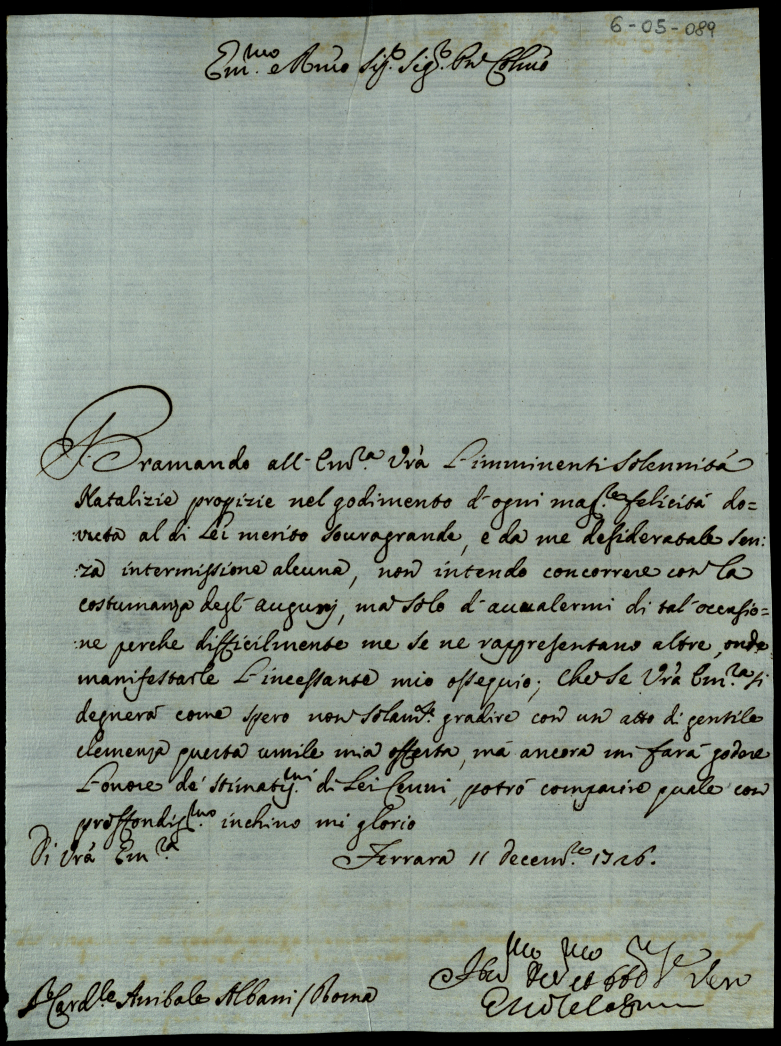 6-05-089
Em.mo e Rmo Sig.r Sig.r Pne Colmo
Bramando all' Em.za Vrà l'imminenti Solennità
Natalizie propizie nel godimento d'ogni mag.re felicità do=
:vuta al di Lei merito souragrande, e da me desideratale sen:
:za intermissione alcuna, non intendo concorrere con la
costumanza degl' augurij, ma solo d'auualermi di tal' occasio=
:ne perche difficilmente me se ne rappresentano altre, onde
manifestarle l'incessante mio ossequio; Che se Vrà Em.za si
degnerà come spero non solam.te gradire con un atto di gentile
clemenza questa umile mia offerta, mà ancora mi farà godere
l'onore de' stimatis.mi di Lei Cenni, potrò comparire quale con
proffondis.mo inchino mi glorio
Di Vrà Em.za
Ferrara 11 decem.re 1726.
Sr Card.le Anibale Albani / Roma